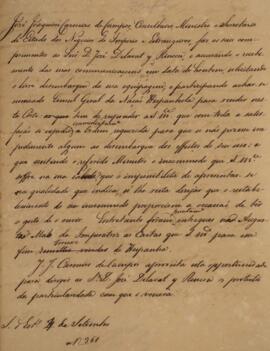 José Joaquim Carneiro de Campos, Conselheiro Ministro e Secretario
de Estado dos Negocios do Imperio e Estrangeiros, faz os seus com-
primentos ao Snr. D. José Delavat y Rincon, e accusando o recebi-
mento das suas communicações em data de hontem, solicitando
o livre desembarque da sua equipagem, e participando achar-se
nomeado Consul Geral da Nação Hespanhola para residir nes-
ta Corte: cumpre em resposta a S. Mce. que com toda a satis-
fação se expedirá a Ordem requerida para que se não ponha im-
pedimento algum ao desembarque dos effeitos do seu uso; e
que sentindo o referido Ministro o incommodo que S. Mce.
soffre na sua saude que o impossibilita de apresentar-se
na qualidade que indica, só lhe resta desejar que o restabele-
cimento do seu incommodo proporcione a occasião de
o gosto de o ouvir. Entretanto ficam entregues
Mag. do Imperador as Cartas que S. Mce.
fim de Hespanha.
J. J. Carneiro de Campos aproveita esta opportunidade
para dirigir ao S. D. José Delavat y Rincon os protestos
da particularidade com que o venera.
S. d'Estº 4 de Setembro
Nº 260